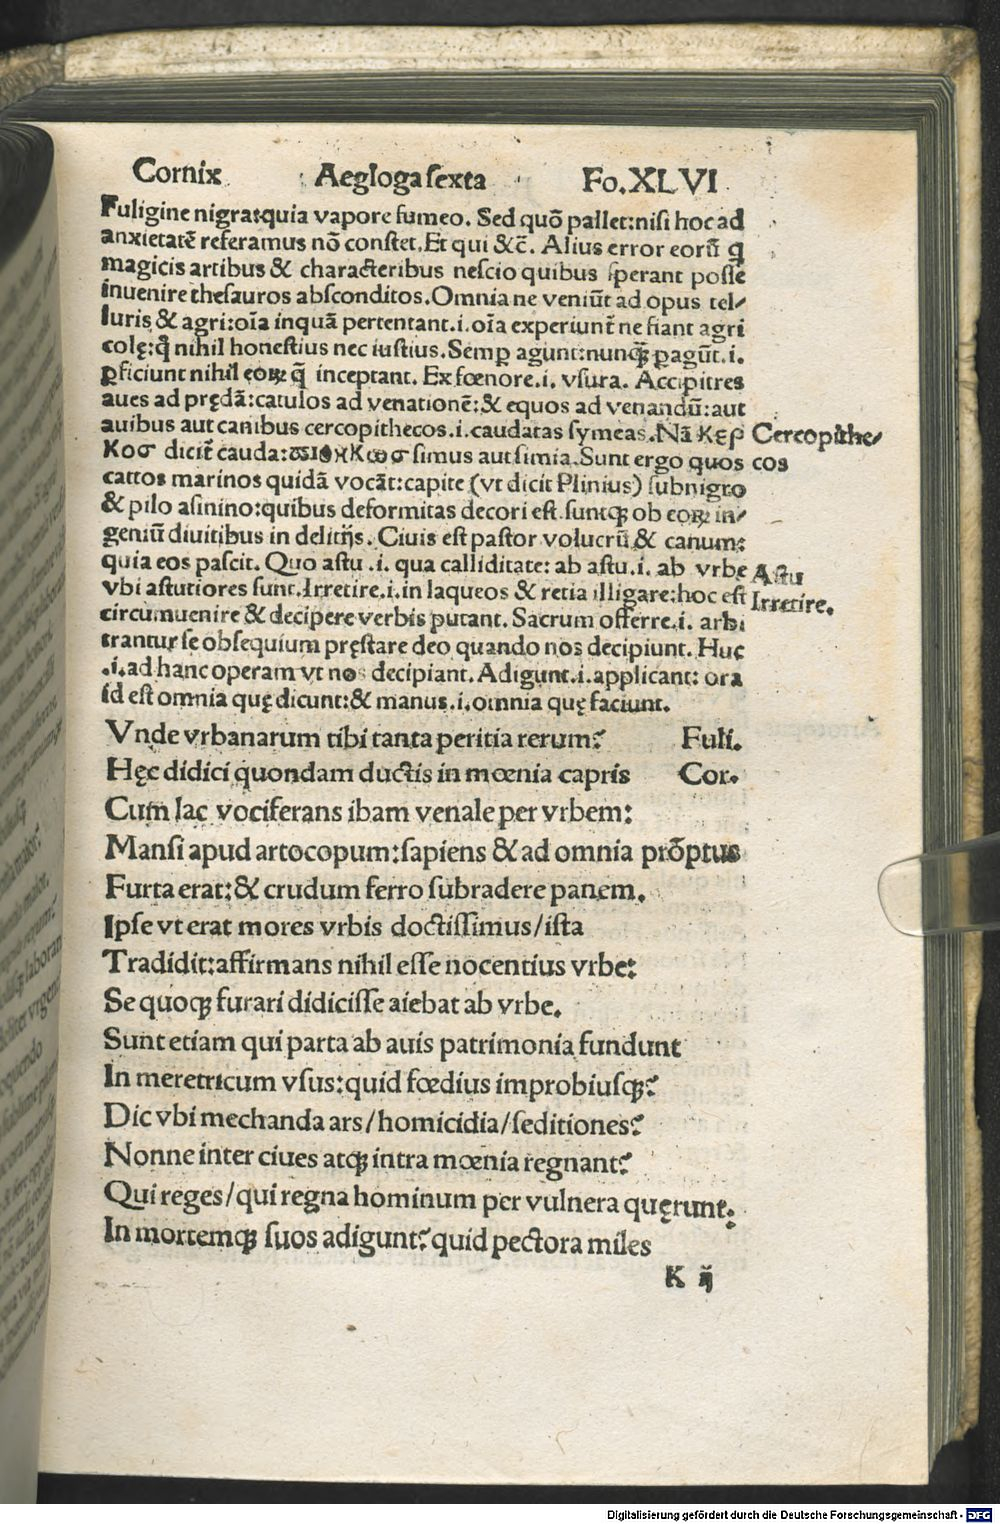 Cornix Aegloga sexta Fo. XLVI
Fuligine nigrat:quia vapore fumeo. Sed quõ pallet:nisi hoc ad
anxietatẽ referamus nõ constet. Et qui &c̃. Alius error eorũ q̃
magicis artibus & characteribus nescio quibus sperant posse
inuenire thesauros absconditos. Omnia ne veniũt ad opus tel/
luris & agri:oĩa inquã pertentant.i.oĩa experiunt̃ ne fiant agri
colę:q̃ nihil honestius nec iustius. Semꝑ agunt:nunꝙ̃ ꝑagũt.i.
ꝑficiunt nihil eoꝝ q̃ inceptant. Ex fœnore.i. vsura. Accipitres
aues ad prędã:catulos ad venationẽ:& equos ad venandũ:aut
auibus aut canibus cercopithecos.i.caudatas symeas. Nã κερ Cercopithe/
κοσ dicit̃ cauda: πιθηκωσ simus aut simia. Sunt ergo quos cos
cattos marinos quidã vocãt:capite (vt dicit Plinius) subnigro
& pilo asinino:quibus deformitas decori est suntꝙ ob eoꝝ in/
geniũ diuitibus in delitijs. Ciuis est pastor volucrũ & canum:
quia eos pascit. Quo astu .i. qua calliditate: ab astu.i. ab vrbe Astu
vbi astutiores sunt. Irretire.i.in laqueos & retia illigare:hoc est Irretire.
circumuenire & decipere verbis putant. Sacrum offerre.i. arbi
trantur se obsequium pręstare deo quando nos decipiunt. Huc
.i.ad hanc operam vt nos decipiant. Adigunt.i.applicant: ora
id est omnia quę dicunt:& manus.i.omnia quę faciunt.
Vnde vrbanarum tibi tanta peritia rerum? Fuli.
Hęc didici quondam ductis in mœnia capris Cor.
Cum lac vociferans ibam venale per vrbem:
Mansi apud artocopum:sapiens & ad omnia prõptus
Furta erat:& crudum ferro subradere panem.
Ipse vt erat mores vrbis doctissimus/ista
Tradidit:affirmans nihil esse nocentius vrbe:
Se quoꝙ furari didicisse aiebat ab vrbe.
Sunt etiam qui parta ab auis patrimonia fundunt
In meretricum vsus:quid fœdius improbiusꝙ?
Dic vbi mechanda ars/homicidia/seditiones?
Nonne inter ciues atꝙ intra mœnia regnant?
Qui reges/qui regna hominum per vulnera quęrunt.
In mortemꝙ suos adigunt?quid pectora miles
K ij
Digitalisierung gefördert durch die Deutsche Forschungsgemeinschaft - DFG